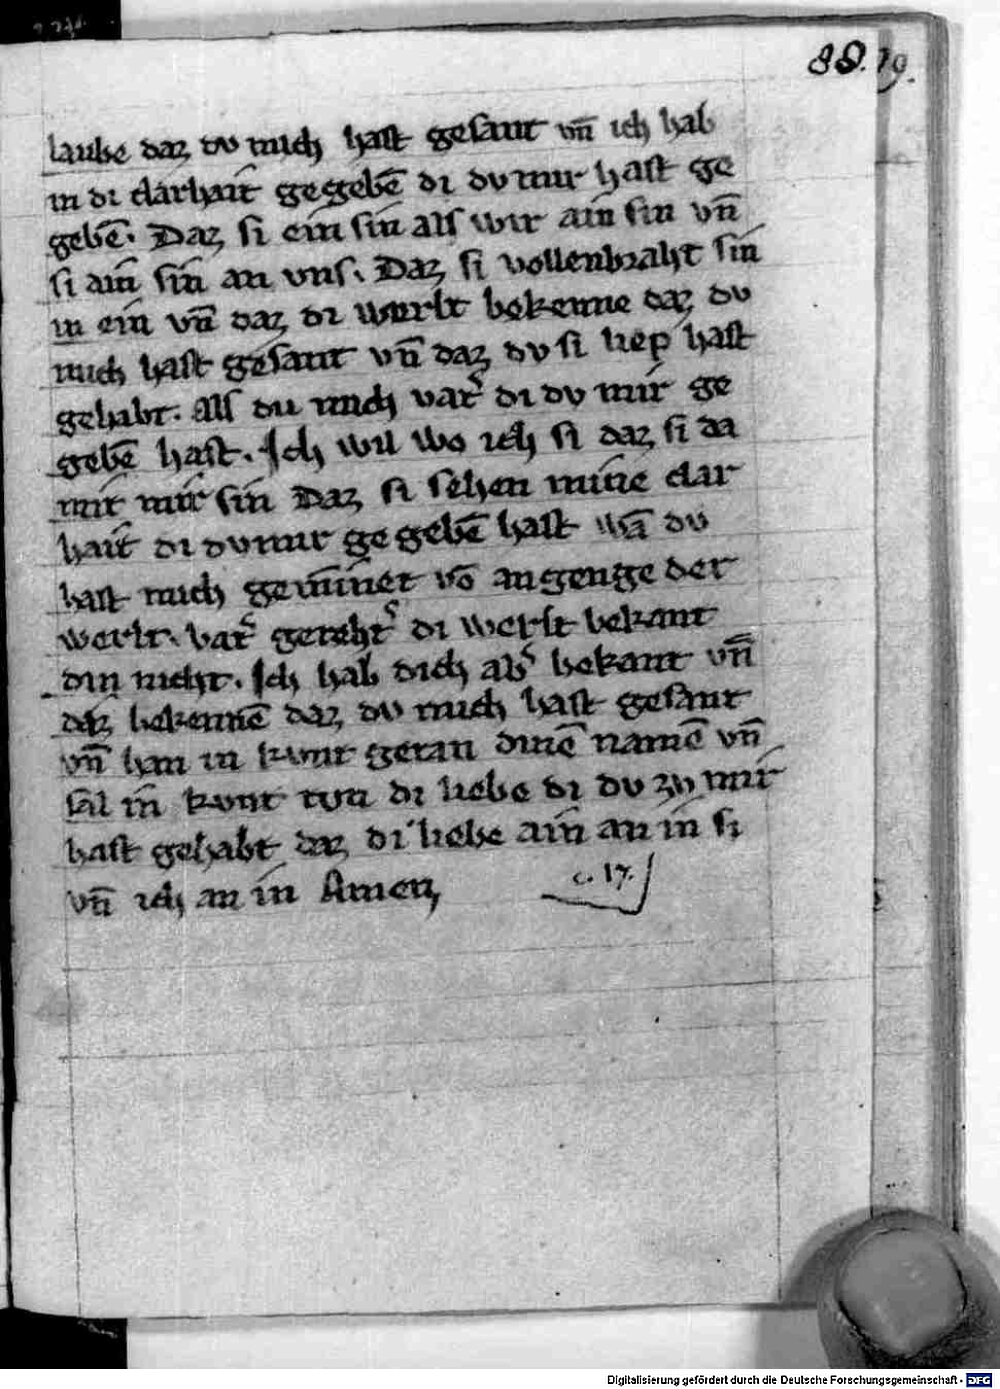 88. 79.
laube daz du mich hast gesant vn̄ ich hab
in di clarhait gegebē di du mir hast ge
gebē. Daz si ein sin als wir ain sin vn̄
si ain sin an vns. Daz si vollenbraht sin
in ein vn̄ daz di werlt bekenne daz du
mich hast gesant vn̄ daz du si liep hast
gehabt. als du mich vat̉ di du mir ge
gebē hast. Ich wil wo ich si daz si da
mit mir sin Daz si sehen mine clar
hait di du mir gegebē hast wā du
hast mich geminnet vō angenge der
werlt. vat̉ gereht̉ di werlt bekant
din nicht. Ich hab dich ab̉ bekant vn̄
daz bekennē daz du mich hast gesant
vn̄ han in kunt getan dinē namē vn̄
sal in kunt tun di liebe di du zu mir
hast gehabt daz di liebe ain an in si
vn̄ ich an in Amen
c. 17.
Digitalisierung gefördert durch die Deutsche Forschungsgemeinschaft - DFG